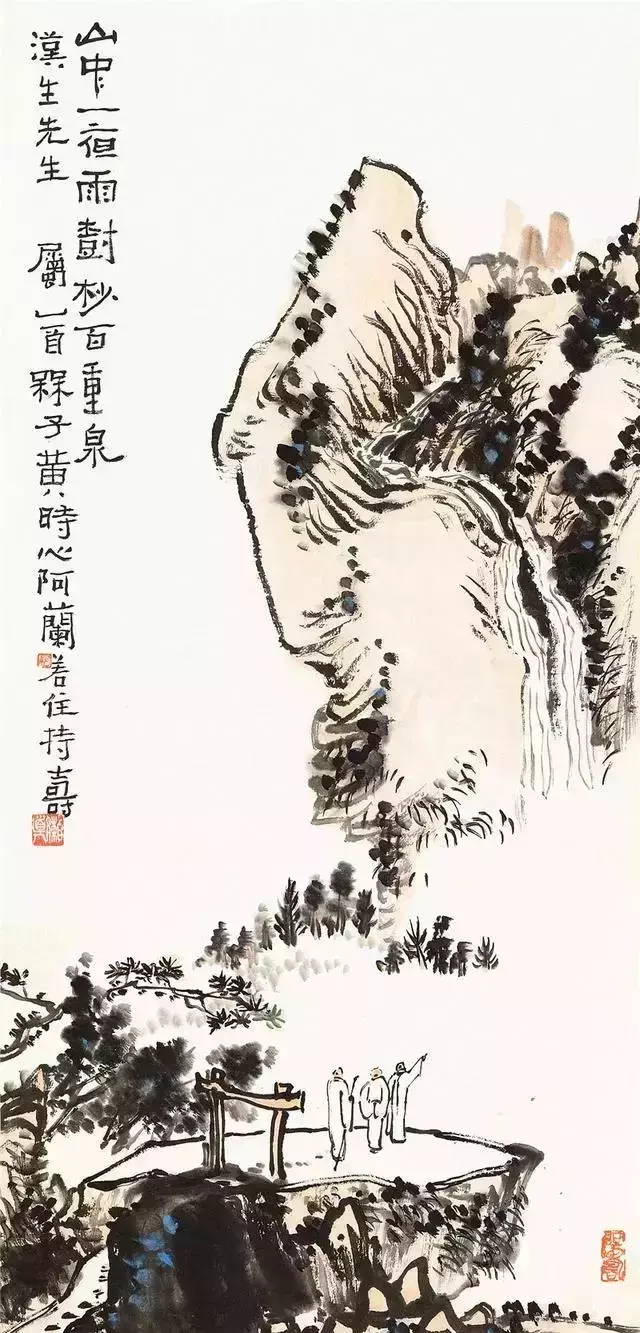 山中一夜雨樹杪百重泉
漢生先生 屬 槑子黃時心阿蘭若住持壽